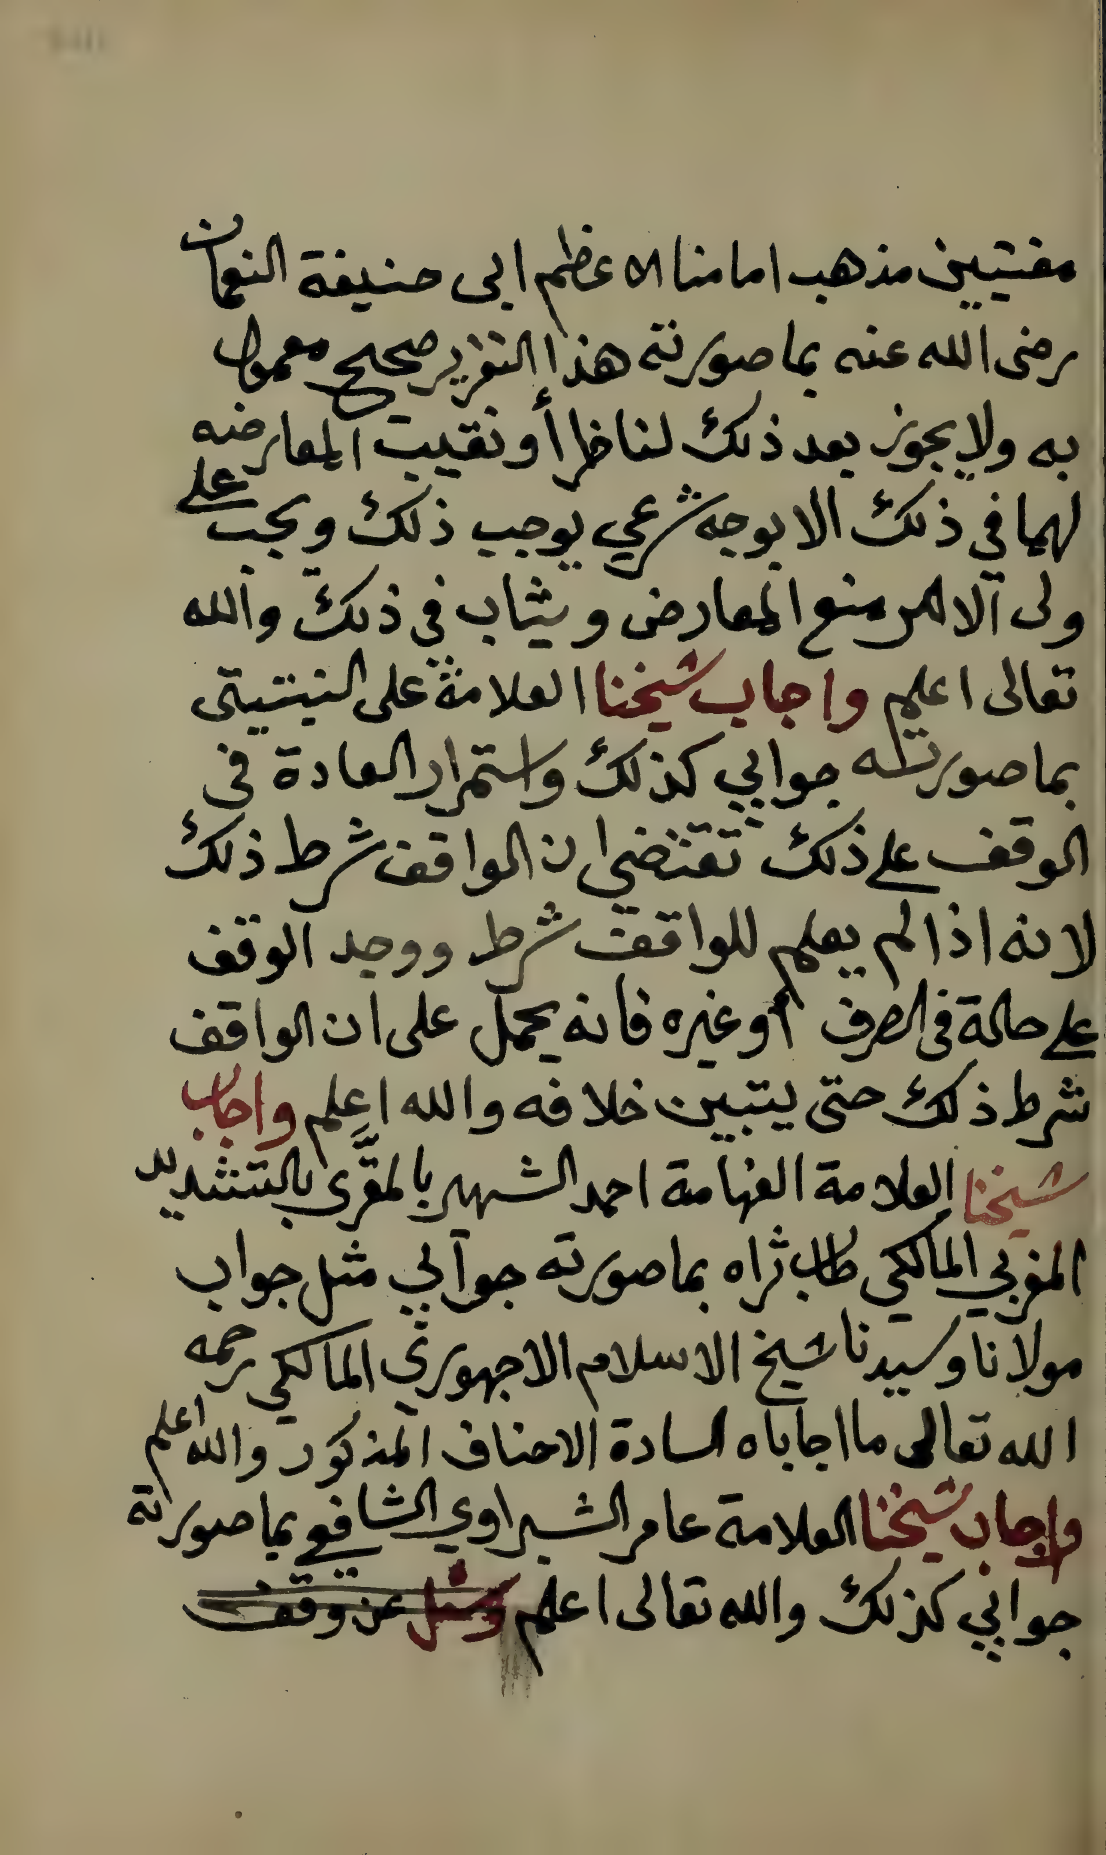 مفتيين مذهب امامنا الاعظم ابى حنيفة النعمان
رضى الله عنه بما صورته هذا التقرير صحيح معمول
به ولا يجوز بعد ذلك لناظر أو نقيب المعارضه
لهما في ذلك الا بوجه شرعي يوجب ذلك ويجب على
ولى الامر منع المعارض ويثاب في ذلك والله
تعالى اعلم واجاب شيخنا العلامة على النبتيتى
بما صورته جوابي كذلك واستمرار العادة فى
الوقف على ذلك تقتضي ان الواقف شرط ذلك
لانه اذا لم يعلم للواقف شرط ووجد الوقف
على حالة في الصرف أو غيره فانه يحمل على ان الواقف
شرط ذلك حتى يتبين خلافه والله اعلم واجاب
شيخنا العلامة الفهامة احمد الشهير بالمقّرى بالتشديد
المغربي المالكي طاب ثراه بما صورته جوابي مثل جواب
مولانا وسيدنا شيخ الاسلام الاجهوري المالكي رحمه
الله تعالى ما اجاباه السادة الاحناف المذكور والله اعلم
واجاب شيخنا العلامة عامر الشبراوي الشافعي بما صورته
جوابي كذلك والله تعالى اعلم وسئل عن وقف